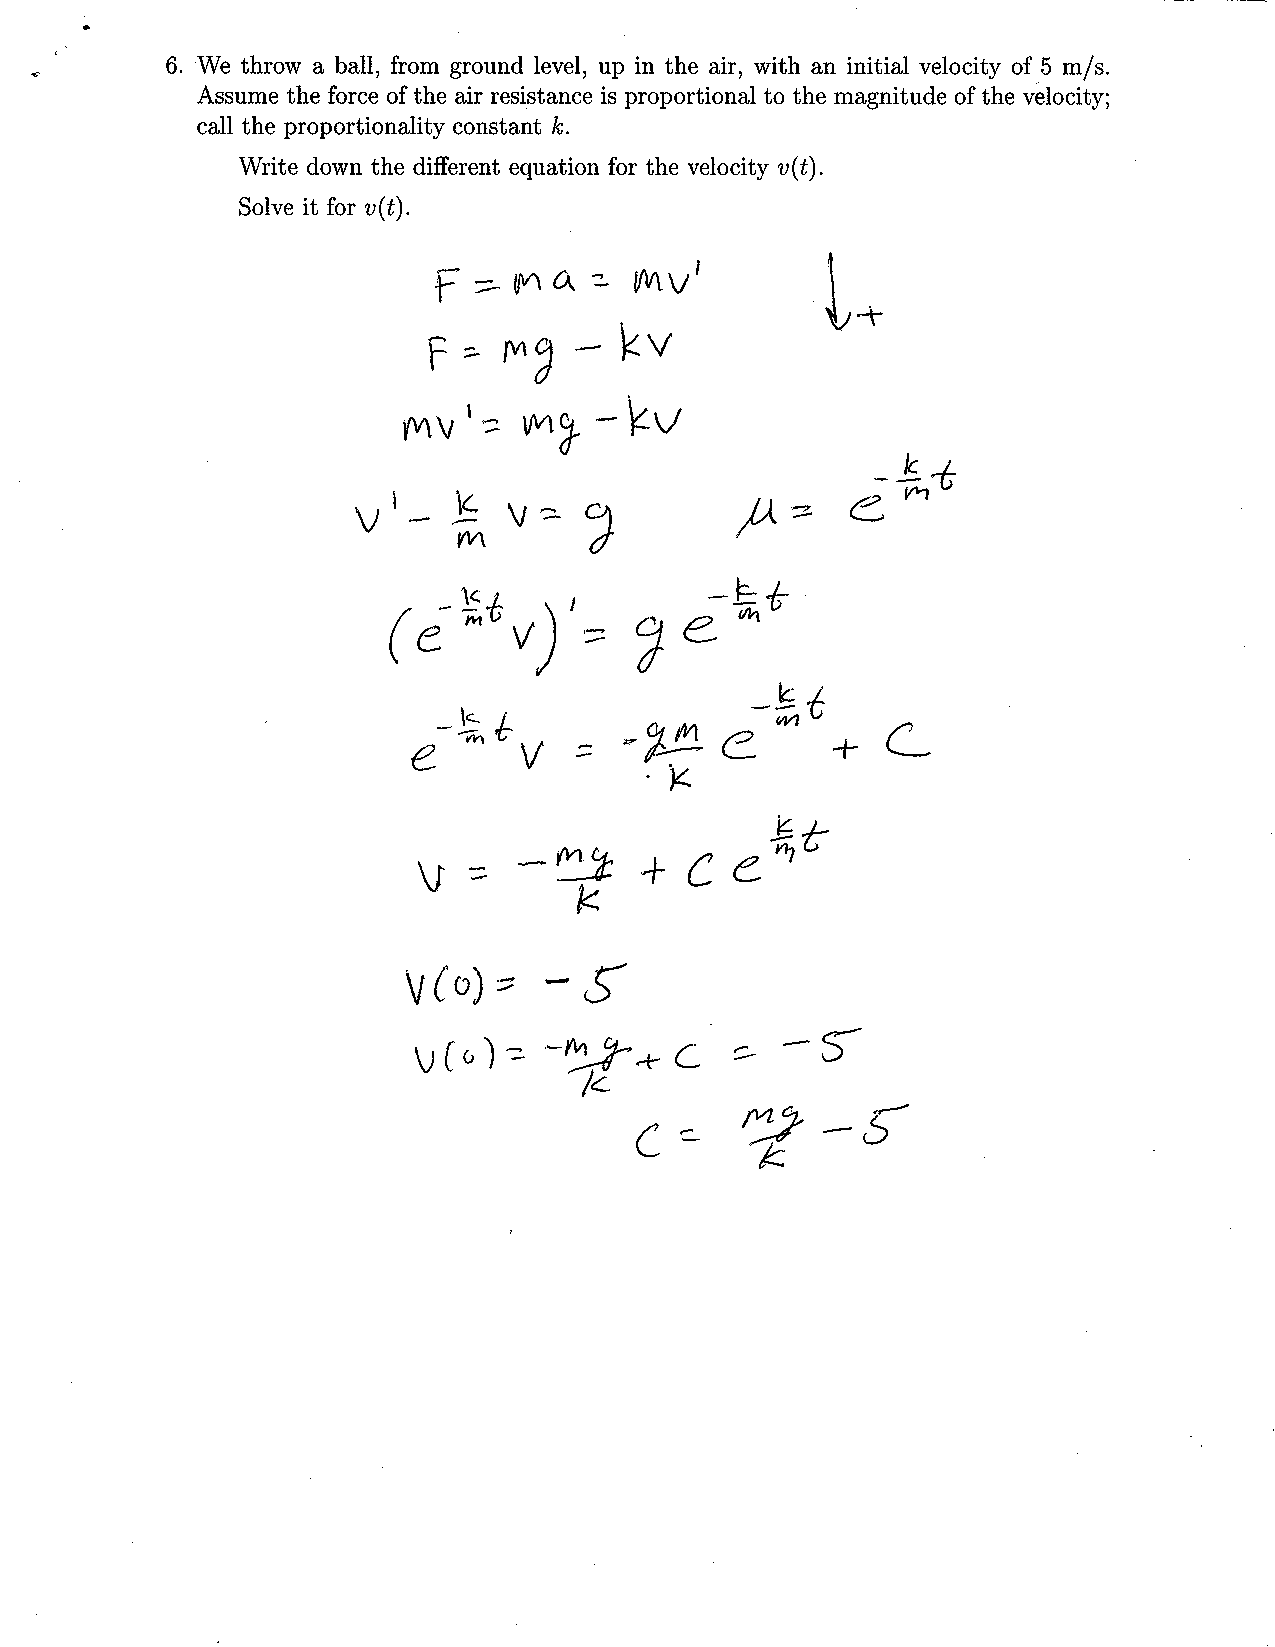 6. We throw a ball, from ground level, up in the air, with an initial velocity of 5 m/s.
Assume the force of the air resistance is proportional to the magnitude of the velocity;
call the proportionality constant k.
Write down the different equation for the velocity v(t).
Solve it for v(t).
F = ma = mv' ↓+
F = mg - kv
mv' = mg - kv
v' - k/m v = g μ = e^(-k/m t)
(e^(-k/m t) v)' = g e^(-k/m t)
e^(-k/m t) v = -gm/k e^(-k/m t) + C
v = -mg/k + C e^(k/m t)
v(0) = -5
v(0) = -mg/k + C = -5
C = mg/k - 5